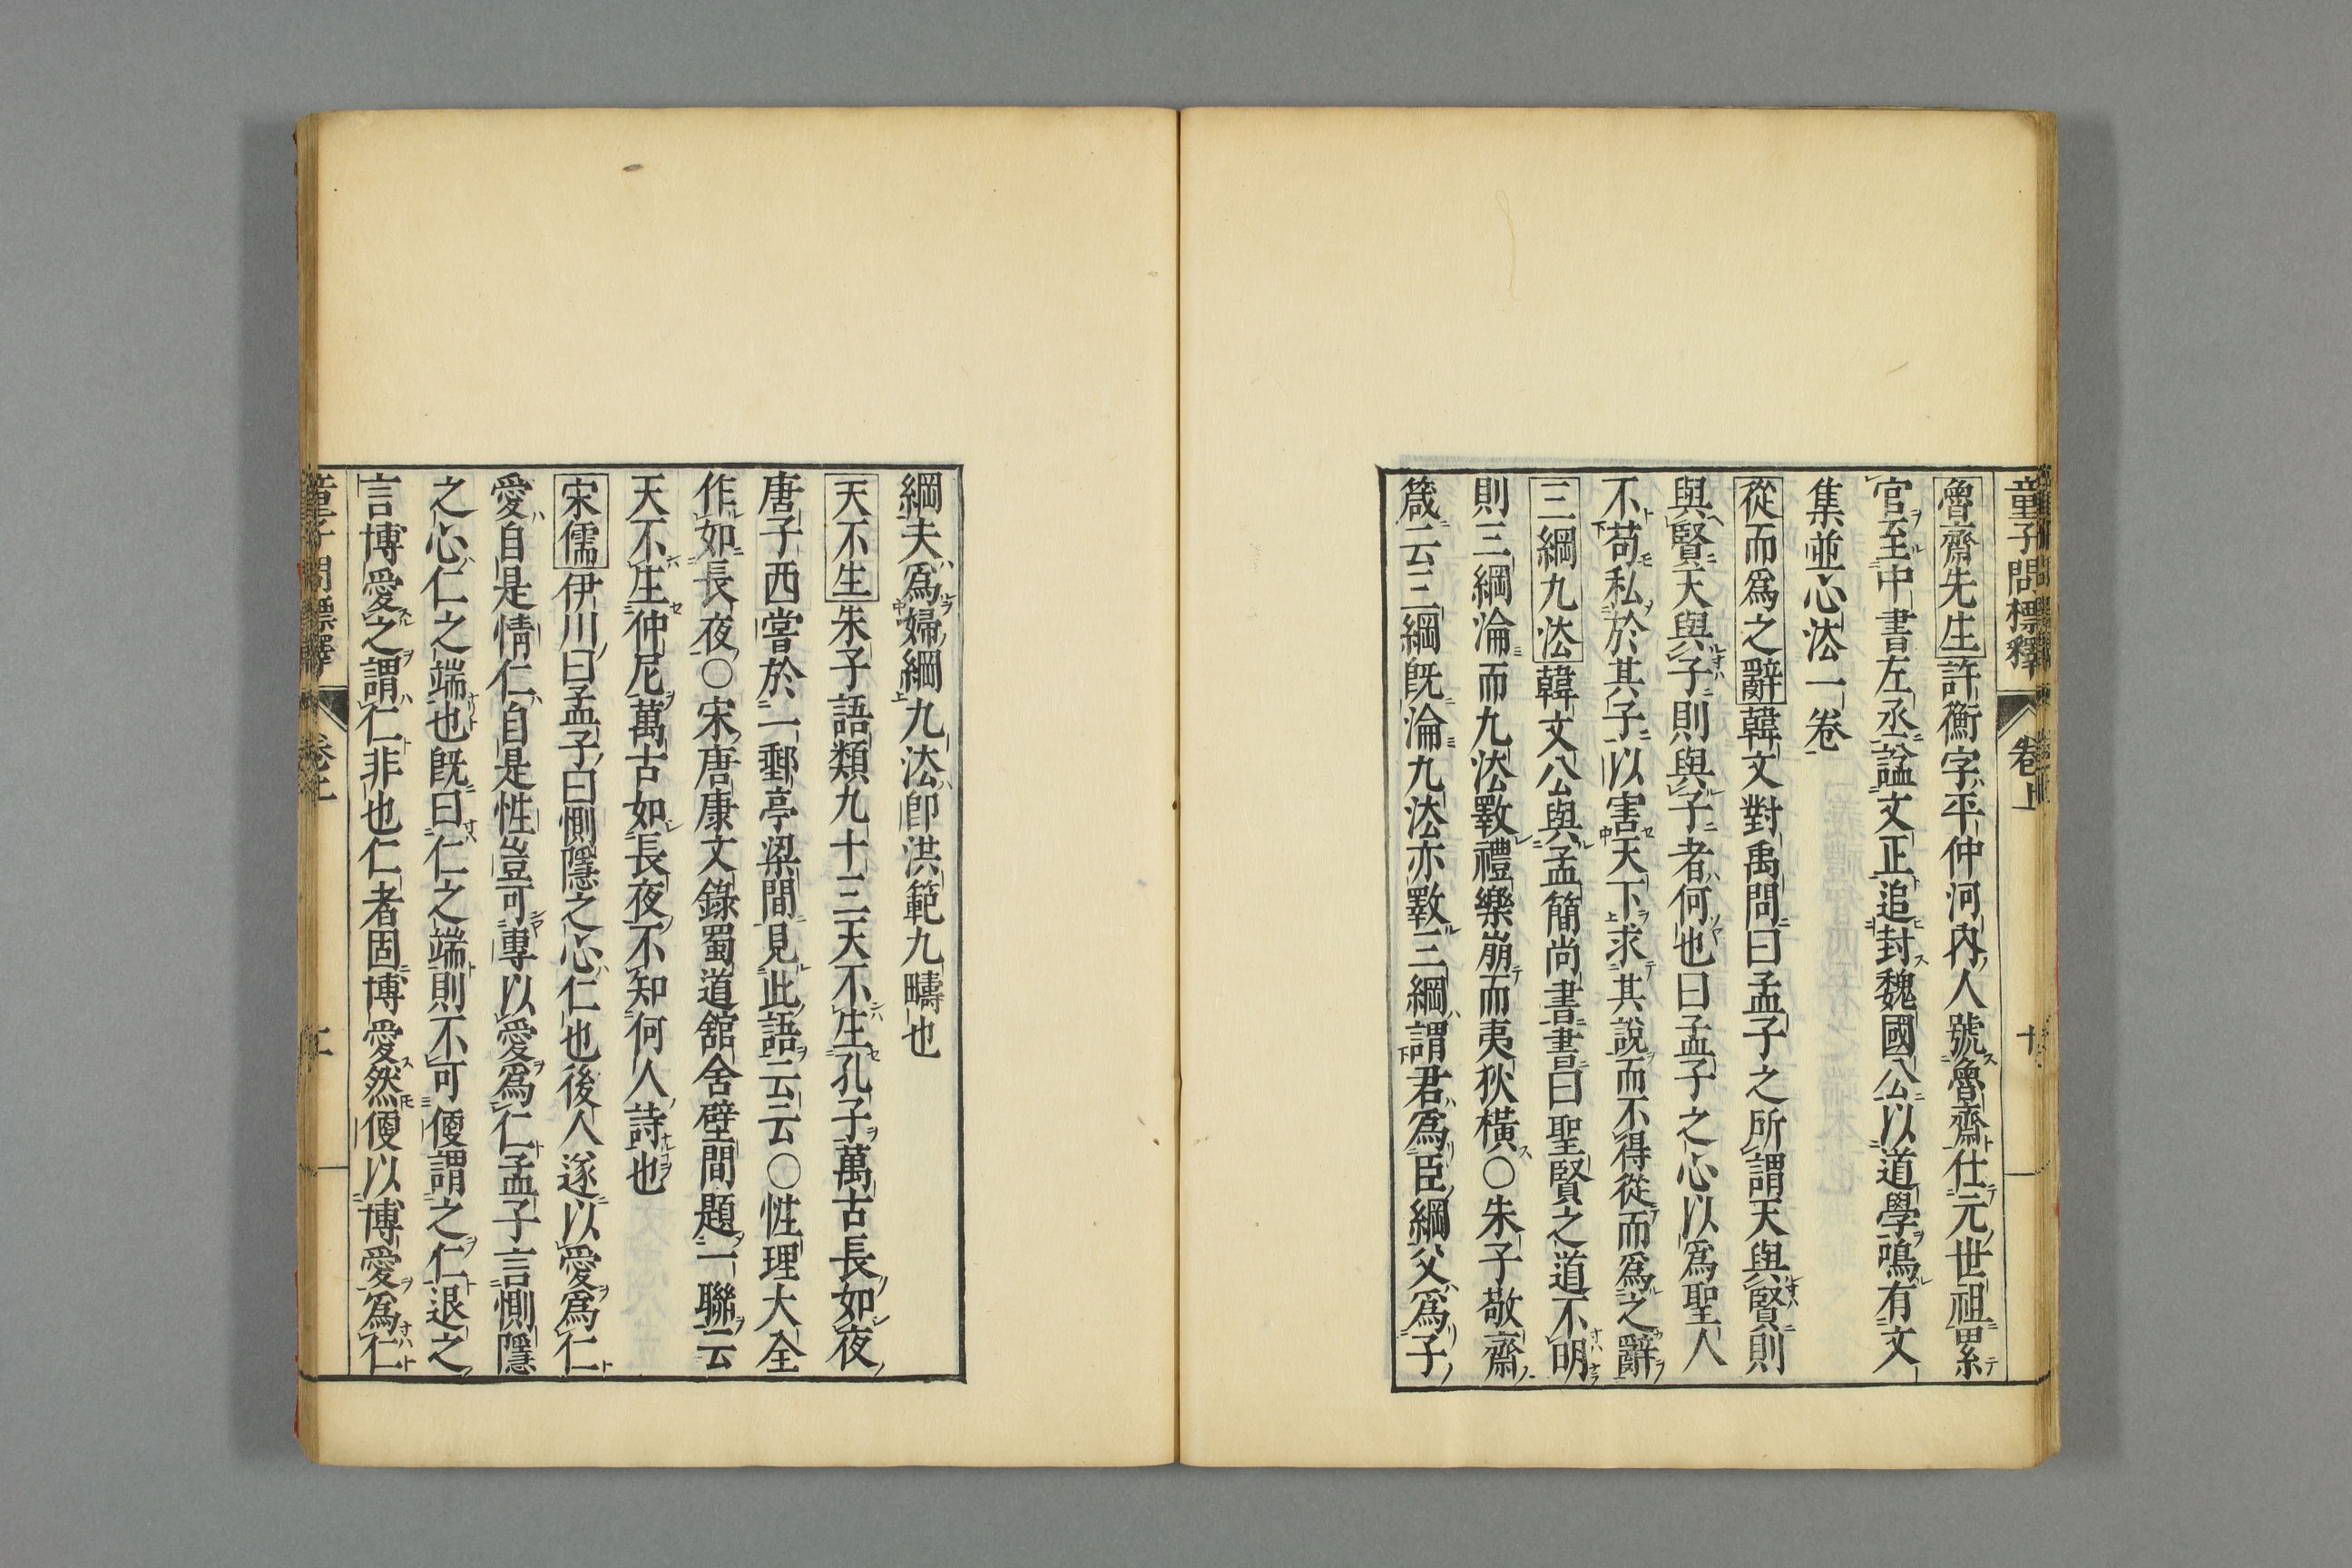 童子問標釋 卷上 十
魯齋先生許衡字平仲河內人號魯齋仕元世祖累
官至中書左丞諡文正追封魏國公以道學鳴有文
集並心法一卷
從而爲之辭韓文對禹問曰孟子之所謂天與賢則
與賢天與子則與子者何也曰孟子之心以爲聖人
不苟私於其子以害天下求其說而不得從而爲之辭
三綱九法韓文公與孟簡尚書書曰聖賢之道不明
則三綱淪而九法斁禮樂崩而夷狄橫○朱子敬齋
箴云三綱旣淪九法亦斁三綱謂君爲臣綱父爲子
綱夫爲婦綱九法卽洪範九疇也
天不生朱子語類九十三天不生孔子萬古長如夜
唐子西嘗於一郵亭梁間見此語云云○性理大全
作如長夜○宋唐康文錄蜀道舘舍壁間題一聯云
天不生仲尼萬古如長夜不知何人詩也
宋儒伊川曰孟子曰惻隱之心仁也後人遂以愛爲仁
愛自是情仁自是性豈可專以愛爲仁孟子言惻隱
之心仁之端也旣曰仁之端則不可便謂之仁退之
言博愛之謂仁非也仁者固博愛然便以博愛爲仁